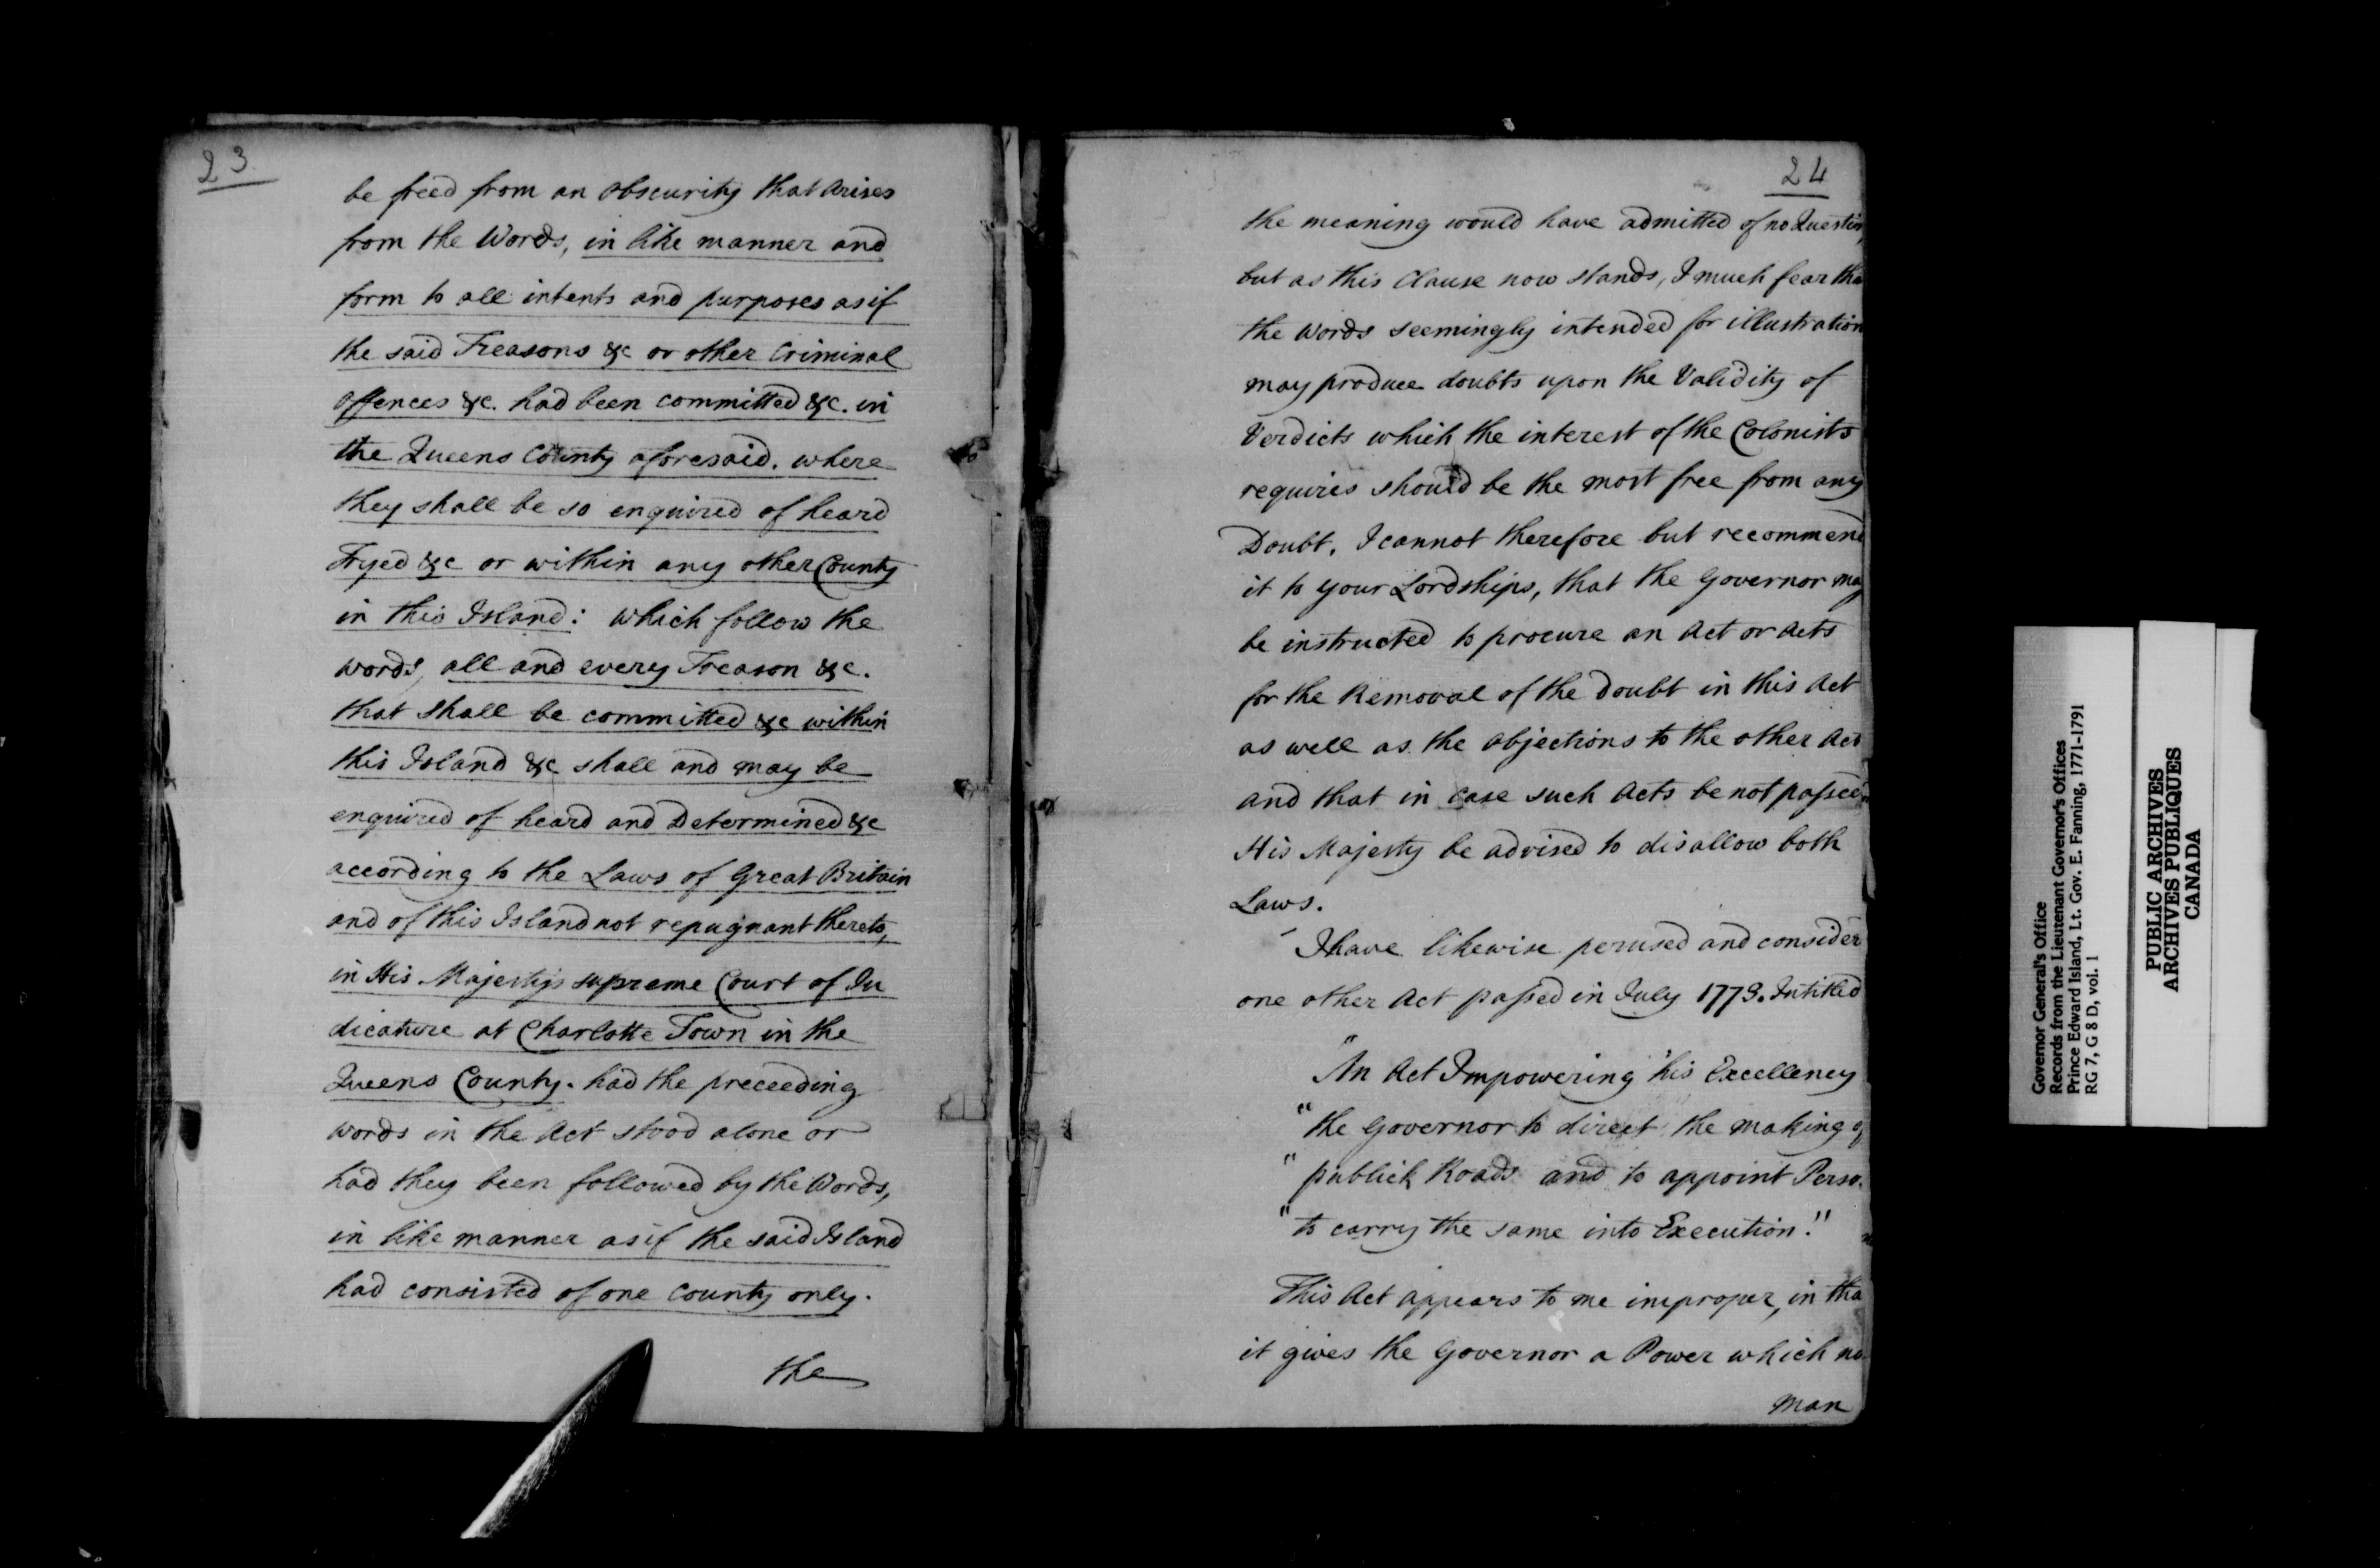 23
be freed from an obscurity that Arises
from the Words, in like manner and
form to all intents and purposes as if
the said Treasons &c or other Criminal
Offences &c. had been committed &c. in
the Queens County aforesaid. where
they shall be so enquired of heard
Tryed &c or within any other County
in this Island: which follow the
words, all and every Treason &c.
that shall be committed &c within
this Island &c shall and may be
enquired of heard and Determined &c
according to the Laws of Great Britain
and of this Island not repugnant thereto,
in His Majestys supreme Court of Ju
dicature at Charlotte Town in the
Queens County. had the preceeding
words in the Act stood alone or
had they been followed by the Words,
in like manner as if the said Island
had consisted of one County only.
the
24
the meaning would have admitted of no Question,
but as this Clause now stands, I much fear tha
the words seemingly intended for illustration
may produce doubts upon the Validity of
Verdicts which the interest of the Colonists
requires should be the most free from any
Doubt. I cannot therefore but recommend
it to your Lordships, that the Governor may
be instructed to procure an Act or Acts
for the Removal of the Doubt in this Act
as well as the objections to the other Act
and that in case such Acts be not passed
His Majesty be advised to disallow both
Laws.
I have likewise perused and consider
one other Act passed in July 1773. Intitled
"An Act Impowering his Excellency
"the Governor to direct the making of
"publick Roads and to appoint Perso
"to carry the same into Execution."
This Act appears to me improper, in tha
it gives the Governor a Power which no
man
Governor General's Office
Records from the Lieutenant Governor's Offices
Prince Edward Island, Lt. Gov. E. Fanning, 1771-1791
RG 7, G 8 D, vol. 1
PUBLIC ARCHIVES
ARCHIVES PUBLIQUES
CANADA